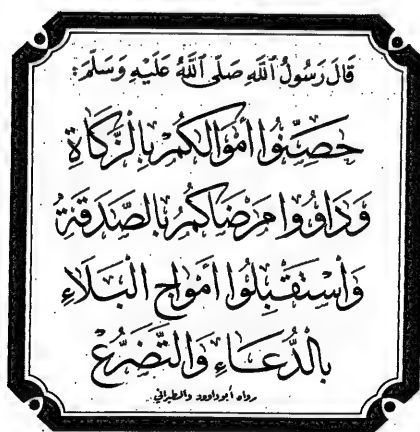 قَالَ رَسُولُ اللَّهِ صَلَّى اللَّهُ عَلَيْهِ وَسَلَّمَ :
حَصِّنُوا أَمْوَالَكُمْ بِالزَّكَاةِ
وَدَاوُوا مَرْضَاكُمْ بِالصَّدَقَةِ
وَاسْتَقْبِلُوا أَمْوَاجَ الْبَلَاءِ
بِالدُّعَاءِ وَالتَّضَرُّعِ
رواه أبو داوود والطبراني